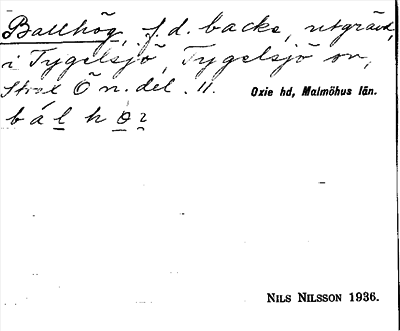 Ballhög, f. d. backe, utgrävd,
i Tygelsjö, Tygelsjö sn,
Strax Ö n. del. 11. Oxie hd, Malmöhus län.
b á l h ö
NILS NILSSON 1936.